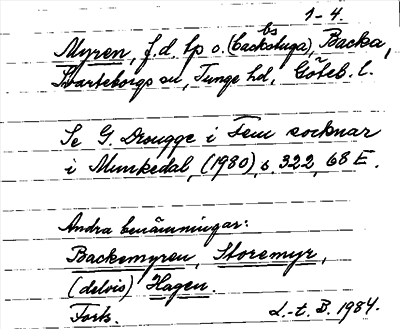 1-4.
bs
Myren, f.d. lp o. (backstuga), Backa,
Svarteborgs sn, Tunge hd, Göteb. l.
Se G. Drougge i Fem socknar
i Munkedal, (1980), s. 322, 68 E.
Andra benämningar:
Backemyren, Storemyr,
(delvis) Hagen.
Forts. L.-t. B. 1984.